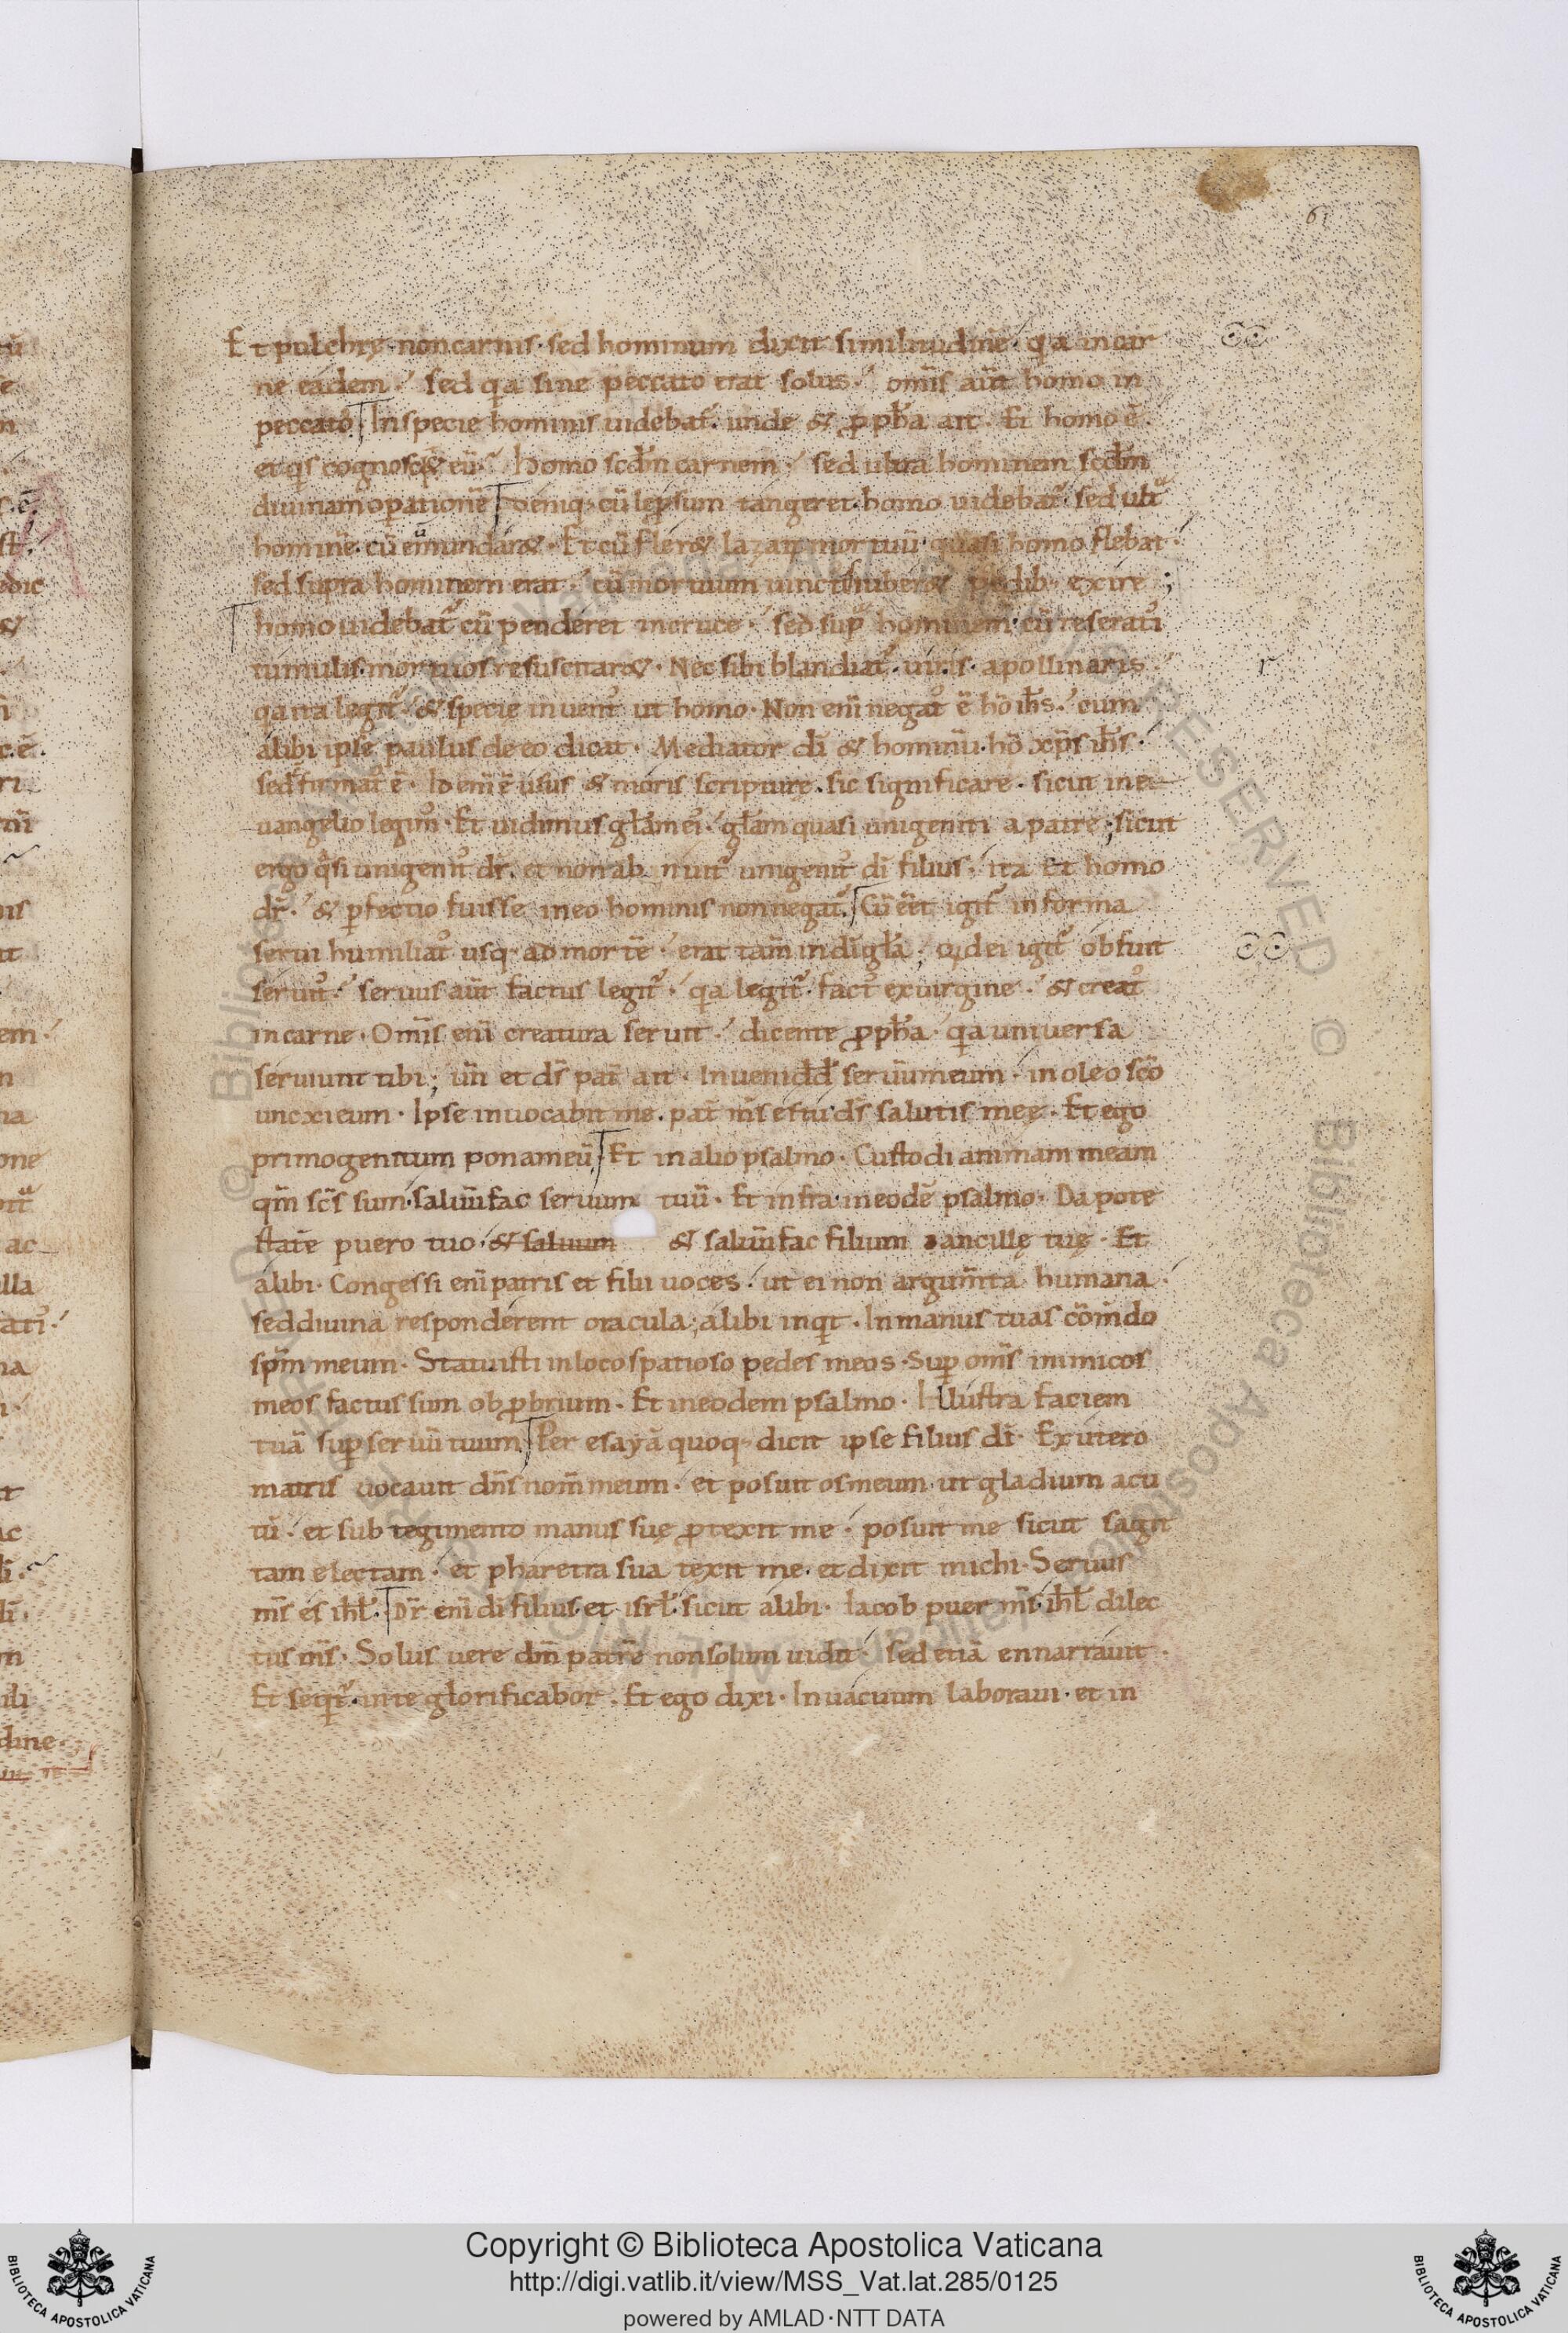 61
Et pulchrę non carnis· sed hominum dixit similitudinē· qa in car
ne eadem· sed qa sine peccato erat solus· om̄is aūt homo in
peccato In specie hominis uidebat᷑· unde & ꝓph̄a ait· Et homo ē·
et qis cognoscet eū· homo scd̄m carnem· sed ultra hominem scd̄m
diuinam oꝑationē deniq· cū lep̄sum tangeret homo uidebat᷑ sed ult᷑
hominē· cū emundar&· Et cū fler& lazarū mortuū quasi homo flebat·
sed supra hominem erat· cū mortuum uinctis iuber& pedib· exire;
homo uidebat᷑ cū penderet in cruce· sed sup᷑ hominem cū reseratꝰ
tumulis mortuos resuscitar&· Nec sibi blandiat᷑ uirus apollinaris·
qa ita legit᷑ & specie inuentꝰ ut homo· Non eni negatꝰ ē hō ih̄s· cum
alibi ipse paulus de eo dicit· Mediator dī & hominū hō xp̄s ih̄s·
sed firmatꝰ ē· Id eni ē usus & moris scripturę· sic significare· sicut in e
uangelio legimꝰ· Et uidimus gl̄am eiꝰ gl̄am quasi unigeniti a patre; sicut
ergo qͣsi unigenitꝰ dr̄· et non ab nuit᷑ unigenitꝰ dī filius· ita Et homo
dr̄· & ꝑfectio fuisse in eo hominis non negat᷑· Cū eēt igit᷑ in forma
serui humiliatꝰ usq· ad mortē· erat tam̄ in dī gl̄a; Qd dei igit᷑ obfuit
seruitꝰ· seruus aūt factus legit᷑· qa legit᷑ factꝰ ex uirgine· & creatꝰ
in carne· Om̄is eni creatura seruit· dicente ꝓph̄a· qa uniuersa
seruiunt tibi; un̄ et dš pat̄ ait· Inueni dd̄ seruūmeum· in oleo sc̄o
unxi eum· Ipse inuocabit me· pat̄ m̄s es tu· dš salutis meę· Et ego
primogenitum ponam eū Et in alio psalmo· Custodi animam meam
qm̄ sc̄s sum· saluūfac seruum tuū· Et infra in eodē psalmo· Da pote
statē puero tuo· & saluum & saluūfac filium ancillę tuę· Et
alibi· Congessi eni patris et filii uoces· ut ei non argum̄ta humana·
sed diuina responderent oracula; alibi inqit· In manus tuas cōmdo
sp̄m meum· Statuisti in loco spatioso pedes meos· Suꝑ om̄s inimicos
meos factus sum obꝓbrium· Et in eodem psalmo· Illustra faciem
tuā suꝑ seruū tuum Per esayā quoq· dicit ipse filius dī· Ex utero
matris uocauit dn̄s nom̄ meum· et posuit os meum ut gladium acu
tū· et sub tegimento manus suę ꝓtexit me· posuit me sicut sagit
tam electam· et pharetra sua texit me· et dixit michi· Seruus
m̄s es ih̄l· Dr̄ eni dī filius et isrl̄· sicut alibi· Iacob puer m̄s· ih̄l dilec
tus m̄s· Solus uere dm̄ patrē non solum uidit· sed etiā ennarrauit·
Et seqit᷑ in te glorificabor· Et ego dixi· In uacuum laboraui· et in
Copyright © Biblioteca Apostolica Vaticana
http://digi.vatlib.it/view/MSS_Vat.lat.285/0125
powered by AMLAD·NTT DATA
BIBLIOTECA APOSTOLICA VATICANA
BIBLIOTECA APOSTOLICA VATICANA